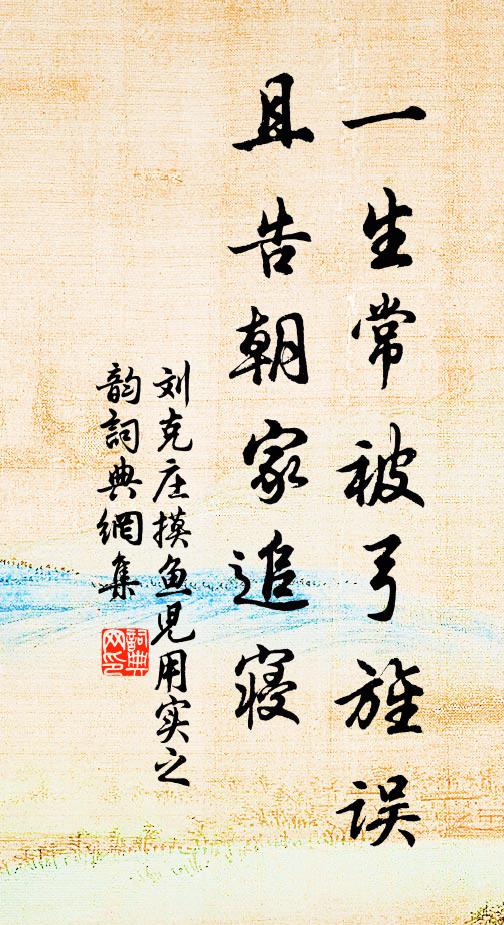 一生常被弓旌误
且告朝家追寝
刘克庄摸鱼児用实之
韵詞典網集
詞典
网印